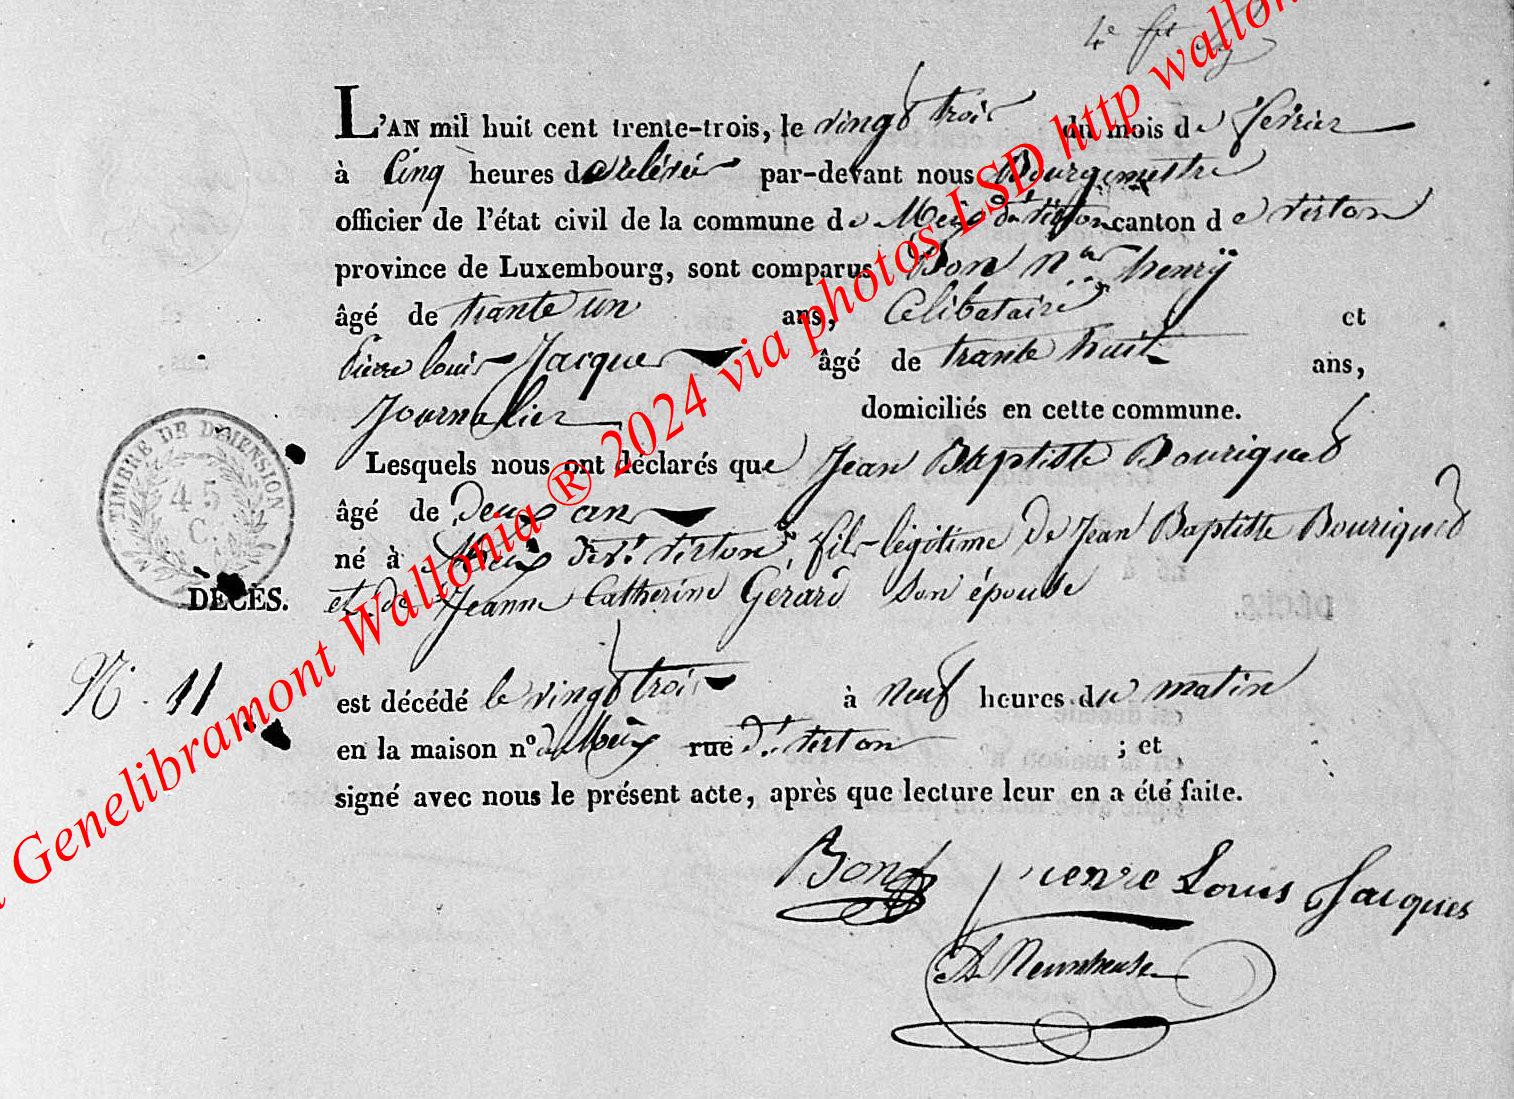 4e
L'AN mil huit cent trente-trois, le vingt trois du mois de fevrier
à Cinq heures de relevée par-devant nous Bourgemestre
officier de l'état civil de la commune de Meix dt Virton canton de Virton
province de Luxembourg, sont comparus Bon henrÿ
âgé de trante un ans, Celibataire et
Pierre louis Jacque âgé de trante huit ans,
Journalier domiciliés en cette commune.
Lesquels nous ont déclarés que Jean Baptiste Bouriquet
âgé de Deux ans
né à Meix devt Virton fils légitime de Jean Baptiste Bouriquet
et de Jeanne Catherine Gérard Son épouse
TIMBRE DE DIMENSION
45
C.
DÉCÈS.
N. 11
est décédé le vingt trois à neuf heures du matin
en la maison nº de Meix rue dt Virton ; et
signé avec nous le présent acte, après que lecture leur en a été faite.
Bon Pierre Louis Jacques
Genelibramont Wallonia ® 2024 via photos LSD http wallon